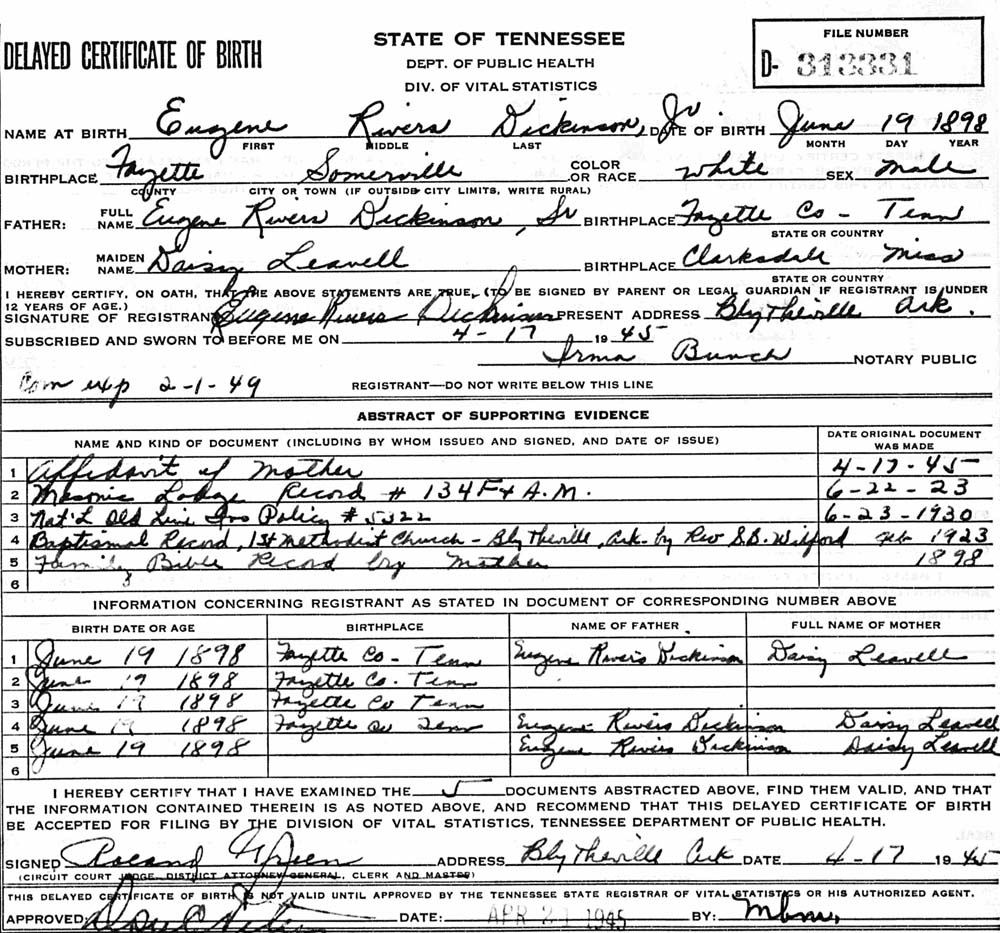 DELAYED CERTIFICATE OF BIRTH
STATE OF TENNESSEE
DEPT. OF PUBLIC HEALTH
DIV. OF VITAL STATISTICS
FILE NUMBER
D- 313331
NAME AT BIRTH Eugene Rivers Dickinson, Jr DATE OF BIRTH June 19 1898
FIRST MIDDLE LAST MONTH DAY YEAR
BIRTHPLACE Fayette Somerville COLOR OR RACE White SEX Male
COUNTY CITY OR TOWN (IF OUTSIDE CITY LIMITS, WRITE RURAL)
FATHER: FULL NAME Eugene Rivers Dickinson, Sr BIRTHPLACE Fayette Co - Tenn
STATE OR COUNTRY
MOTHER: MAIDEN NAME Daisy Leavell BIRTHPLACE Clarksdale Miss
STATE OR COUNTRY
I HEREBY CERTIFY, ON OATH, THAT THE ABOVE STATEMENTS ARE TRUE, (TO BE SIGNED BY PARENT OR LEGAL GUARDIAN IF REGISTRANT IS UNDER
12 YEARS OF AGE.)
SIGNATURE OF REGISTRANT Eugene Rivers Dickinson PRESENT ADDRESS Blytheville Ark.
SUBSCRIBED AND SWORN TO BEFORE ME ON 4-17 1945
Irma Bunch NOTARY PUBLIC
Com exp 2-1-49 REGISTRANT—DO NOT WRITE BELOW THIS LINE
ABSTRACT OF SUPPORTING EVIDENCE
NAME AND KIND OF DOCUMENT (INCLUDING BY WHOM ISSUED AND SIGNED, AND DATE OF ISSUE) DATE ORIGINAL DOCUMENT WAS MADE
1 Affidavit of Mother 4-17-45
2 Masonic Lodge Record # 134 F & A.M. 6-22-23
3 Nat'l Old Line Ins Policy # 5322 6-23-1930
4 Baptismal Record, 1st Methodist Church - Blytheville, Ark. by Rev S.B. Wilford Feb 1923
5 Family Bible Record by Mother 1898
6
INFORMATION CONCERNING REGISTRANT AS STATED IN DOCUMENT OF CORRESPONDING NUMBER ABOVE
BIRTH DATE OR AGE BIRTHPLACE NAME OF FATHER FULL NAME OF MOTHER
1 June 19 1898 Fayette Co - Tenn Eugene Rivers Dickinson Daisy Leavell
2 June 19 1898 Fayette Co. Tenn
3 June 19 1898 Fayette Co Tenn
4 June 19 1898 Fayette Co Tenn Eugene Rivers Dickinson Daisy Leavell
5 June 19 1898 Eugene Rivers Dickinson Daisy Leavell
6
I HEREBY CERTIFY THAT I HAVE EXAMINED THE 5 DOCUMENTS ABSTRACTED ABOVE, FIND THEM VALID, AND THAT
THE INFORMATION CONTAINED THEREIN IS AS NOTED ABOVE, AND RECOMMEND THAT THIS DELAYED CERTIFICATE OF BIRTH
BE ACCEPTED FOR FILING BY THE DIVISION OF VITAL STATISTICS, TENNESSEE DEPARTMENT OF PUBLIC HEALTH.
SIGNED Roland Green ADDRESS Blytheville Ark DATE 4-17 1945
(CIRCUIT COURT JUDGE, DISTRICT ATTORNEY GENERAL, CLERK AND MASTER)
THIS DELAYED CERTIFICATE OF BIRTH IS NOT VALID UNTIL APPROVED BY THE TENNESSEE STATE REGISTRAR OF VITAL STATISTICS OR HIS AUTHORIZED AGENT.
APPROVED: DATE: APR 21 1945 BY: